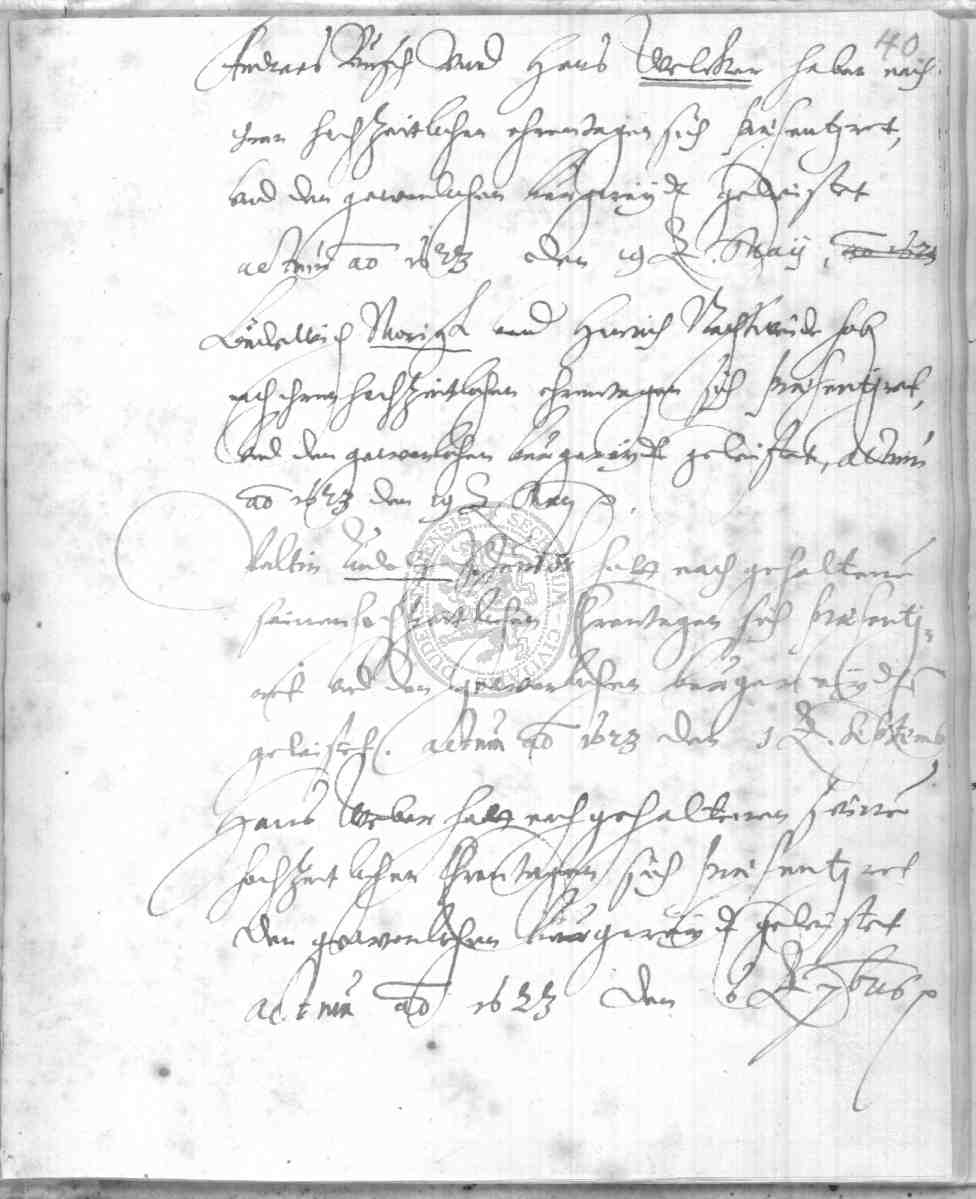 40
Andreas Busch vnd Hans Welcker haben nach
ihren hochzeitlichen ehrentagen sich præsentiret,
vnd den gewonlichen bürgereydt geleistet
actum ao 1623 den 19 May, ao 1623
Lüdellwich Moris vnd Henrich hab
nach ihren hochzeitlichen ehrentagen sich præsentiret,
vnd den gewonlichen bürgereydt geleistet, actum
ao 1623 den 19 May
Valtin hatt nach gehaltene
seinen hochzeitlichen Ehrentagen sich præsenti-
ret vnd den gewonlichen bürgereydt
geleistet. actum ao 1623 den 1 Septemb
Hans Weber hatt nach gehaltenen seine
hochzeitlichen Ehrentagen sich præsentiret
den gewonlichen bürgereydt geleistet
actum ao 1623 den 6 7bris
SECRETUM CIVITATIS DUDERSTADENSIS